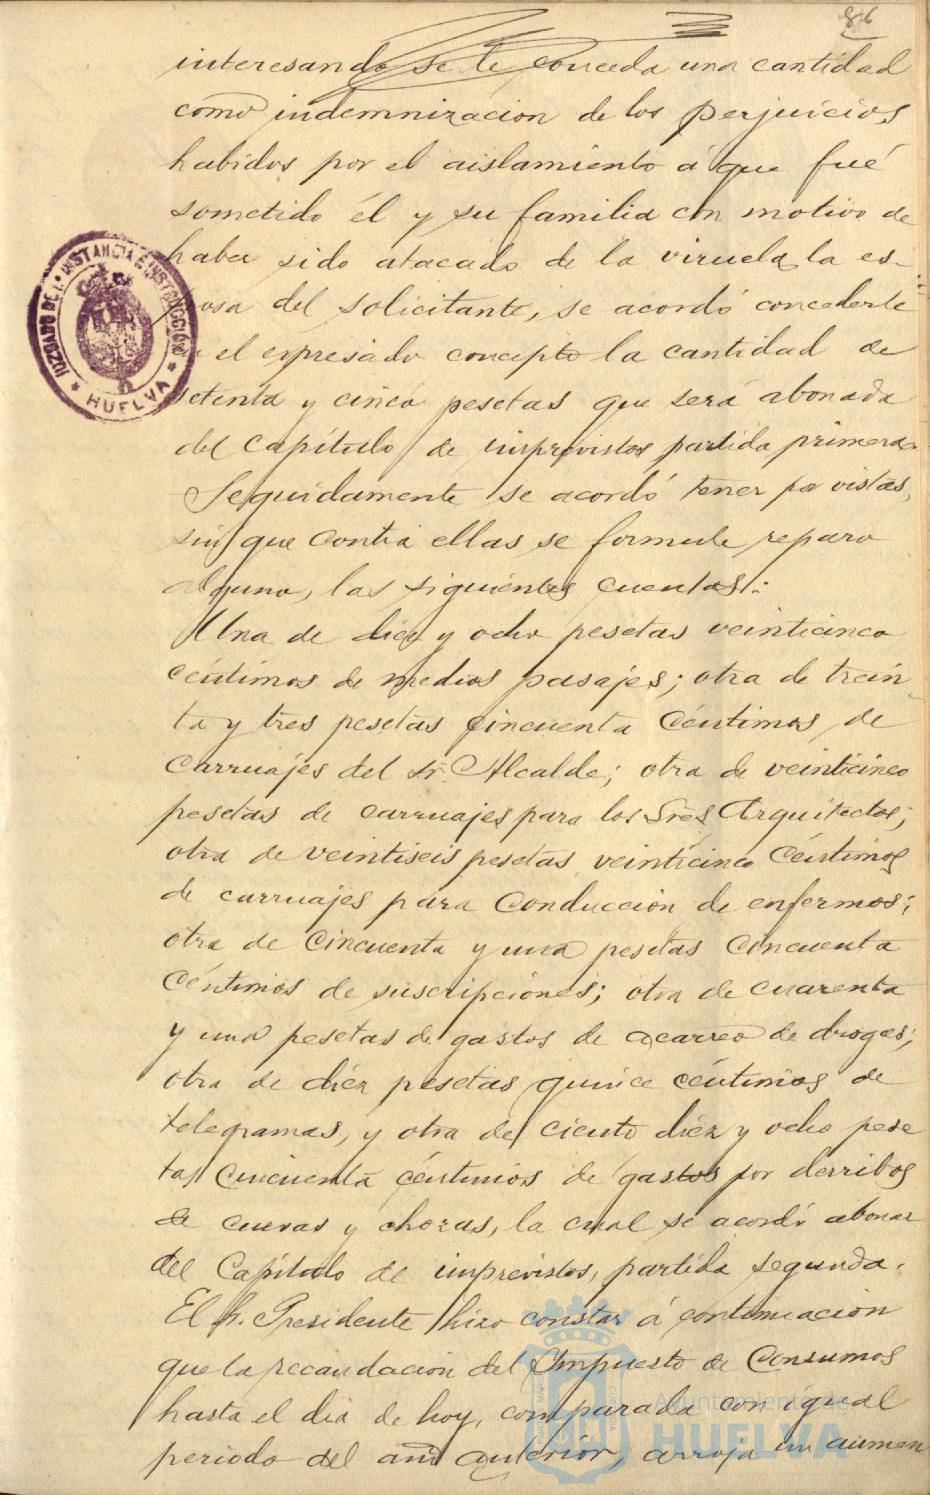 86
interesando se le conceda una cantidad
como indemnización de los perjuicios
habidos por el aislamiento á que fué
sometido él y su familia con motivo de
haber sido atacado de la viruela la es-
posa del solicitante, se acordó concederle
el expresado concepto la cantidad de
setenta y cinco pesetas que será abonada
del Capítulo de imprevistos partida primera.
Seguidamente se acordó tener por vistas,
sin que contra ellas se formule reparo
alguno, las siguientes cuentas:
Una de diez y ocho pesetas veinticinco
céntimos de medios pasajes; otra de trein-
ta y tres pesetas cincuenta céntimos de
carruajes del Sr. Alcalde; otra de veinticinco
pesetas de carruajes para los Sres Arquitectos;
otra de veintiseis pesetas veinticinco céntimos
de carruajes para conducción de enfermos;
otra de cincuenta y una pesetas cincuenta
céntimos de suscripciones; otra de cuarenta
y una pesetas de gastos de acarreo de drogas;
otra de diez pesetas quince céntimos de
telegramas, y otra de ciento diez y ocho pese
tas cincuenta céntimos de gastos por derribos
de cuevas y chozas, la cual se acordó abonar
del Capítulo de imprevistos, partida segunda.
El Sr. Presidente hizo constar á continuación
que la recaudación del Impuesto de Consumos
hasta el dia de hoy, comparada con igual
periodo del año anterior, arroja un aumen
JUZGADO DE 1ª INSTANCIA E INSTRUCCIÓN
* HUELVA *
Ayuntamiento de
HUELVA